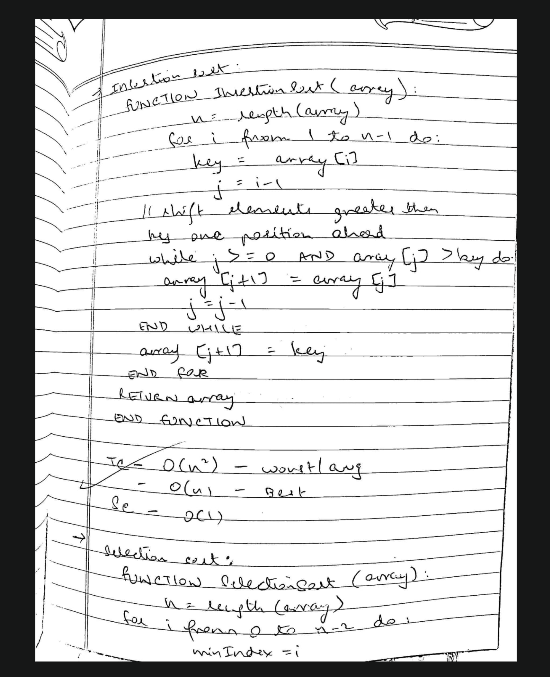 Insertion sort:
FUNCTION InsertionSort (array):
n = length (array)
for i from 1 to n-1 do:
key = array [i]
j = i-1
// shift elements greater then
key one position ahead
while j >= 0 AND array [j] > key do:
array [j+1] = array [j]
j = j-1
END WHILE
array [j+1] = key
END FOR
RETURN array
END FUNCTION
TC - O(n²) - worst/avg
- O(n) - Best
SC - O(1)
→ Selection sort:
FUNCTION SelectionSort (array):
n = length (array)
for i from 0 to n-2 do:
minIndex = i